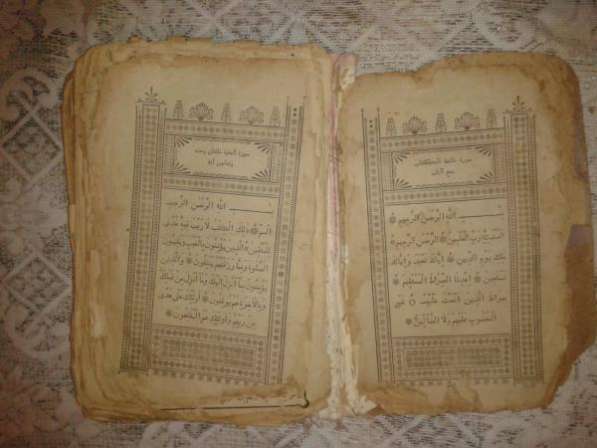 سورة فاتحة
سبع آيات
بِسْمِ اللَّهِ الرَّحْمَنِ الرَّحِيمِ
الْحَمْدُ لِلَّهِ رَبِّ الْعَالَمِينَ الرَّحْمَنِ الرَّحِيمِ
مَالِكِ يَوْمِ الدِّينِ إِيَّاكَ نَعْبُدُ وَإِيَّاكَ
نَسْتَعِينُ اهْدِنَا الصِّرَاطَ الْمُسْتَقِيمَ
صِرَاطَ الَّذِينَ أَنْعَمْتَ عَلَيْهِمْ غَيْرِ
الْمَغْضُوبِ عَلَيْهِمْ وَلَا الضَّالِّينَ
سورة البقرة مائتان وست
وثمانون آية
بِسْمِ اللَّهِ الرَّحْمَنِ الرَّحِيمِ
الم ذَلِكَ الْكِتَابُ لَا رَيْبَ فِيهِ هُدًى
لِلْمُتَّقِينَ الَّذِينَ يُؤْمِنُونَ بِالْغَيْبِ وَيُقِيمُونَ
الصَّلَوةَ وَمِمَّا رَزَقْنَاهُمْ يُنْفِقُونَ وَالَّذِينَ
يُؤْمِنُونَ بِمَا أُنْزِلَ إِلَيْكَ وَمَا أُنْزِلَ مِنْ قَبْلِكَ
وَبِالْآخِرَةِ هُمْ يُوقِنُونَ أُولَئِكَ عَلَى هُدًى
مِنْ رَبِّهِمْ وَأُولَئِكَ هُمُ الْمُفْلِحُونَ